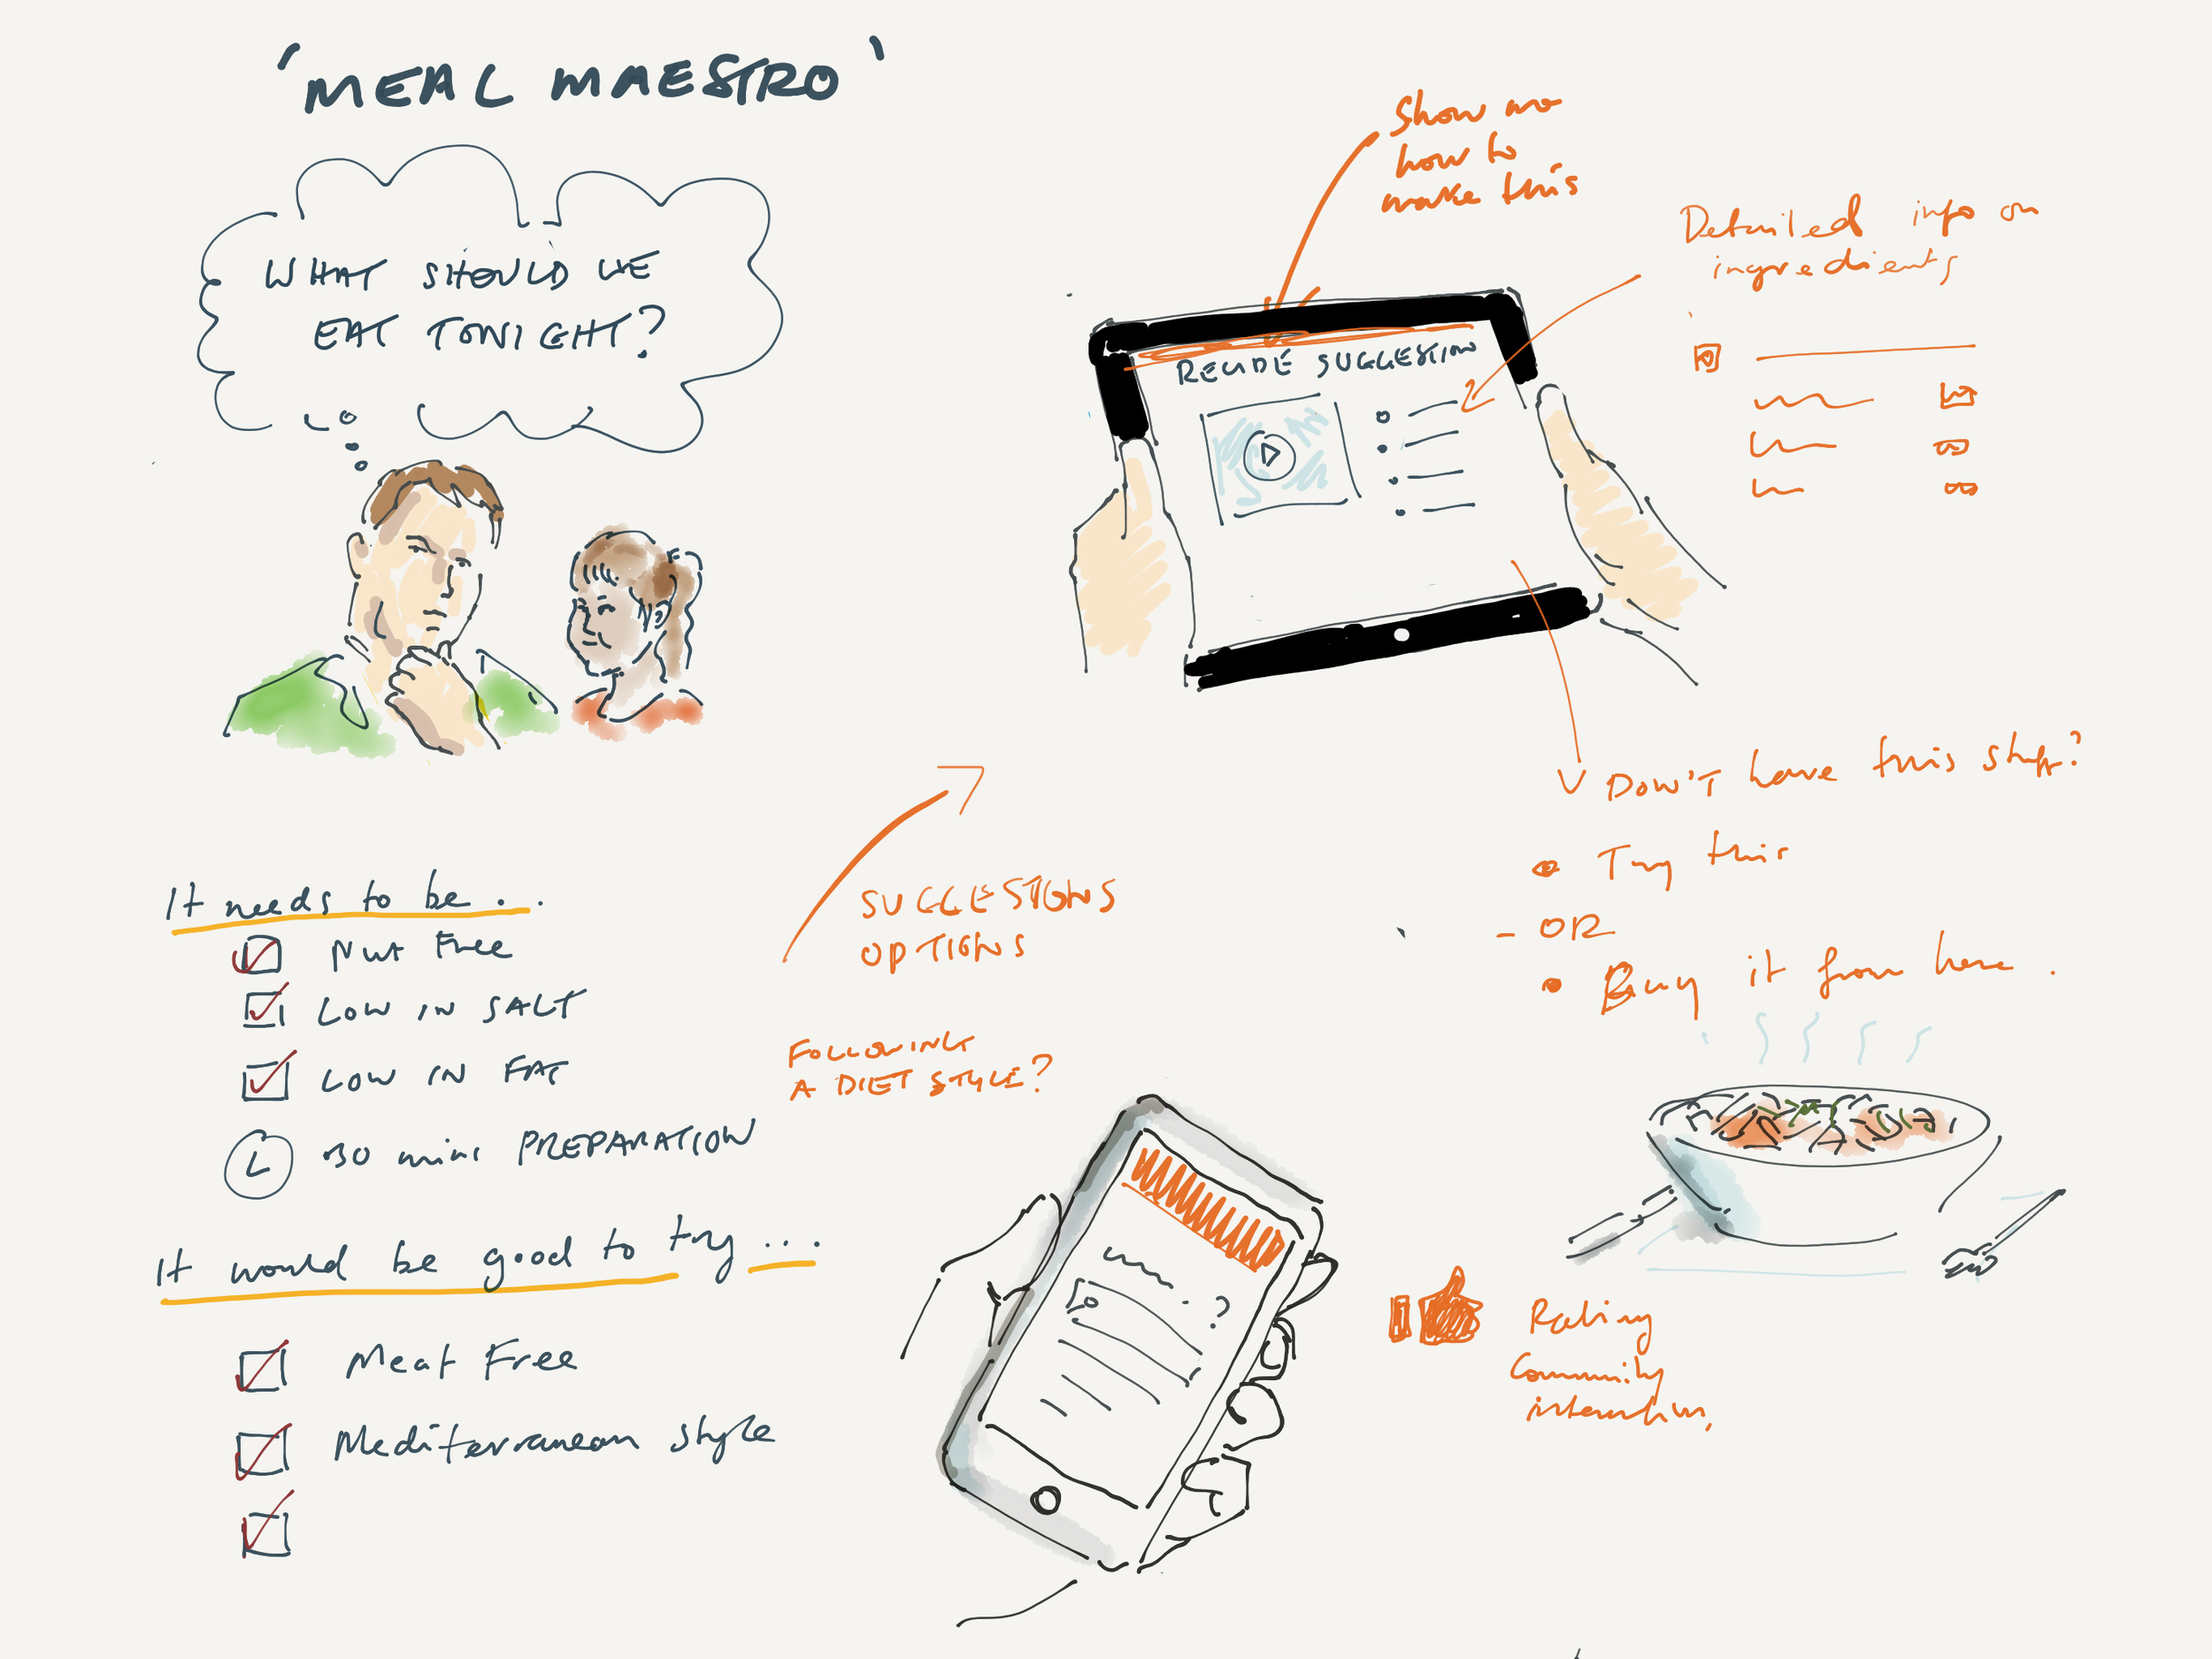 'MEAL MAESTRO'
WHAT SHOULD WE
EAT TONIGHT?
Show me
how to
make this
Detailed info on
ingredients
RECIPE SUGGESTION
Don't have this stuff?
Try this
- OR
Buy it from here.
SUGGESTIONS
OPTIONS
It needs to be...
Nut Free
LOW IN SALT
LOW IN FAT
30 mins PREPARATION
It would be good to try ....
Meat Free
Mediterranean style
FOLLOWING
A DIET STYLE?
?
Rating
Community